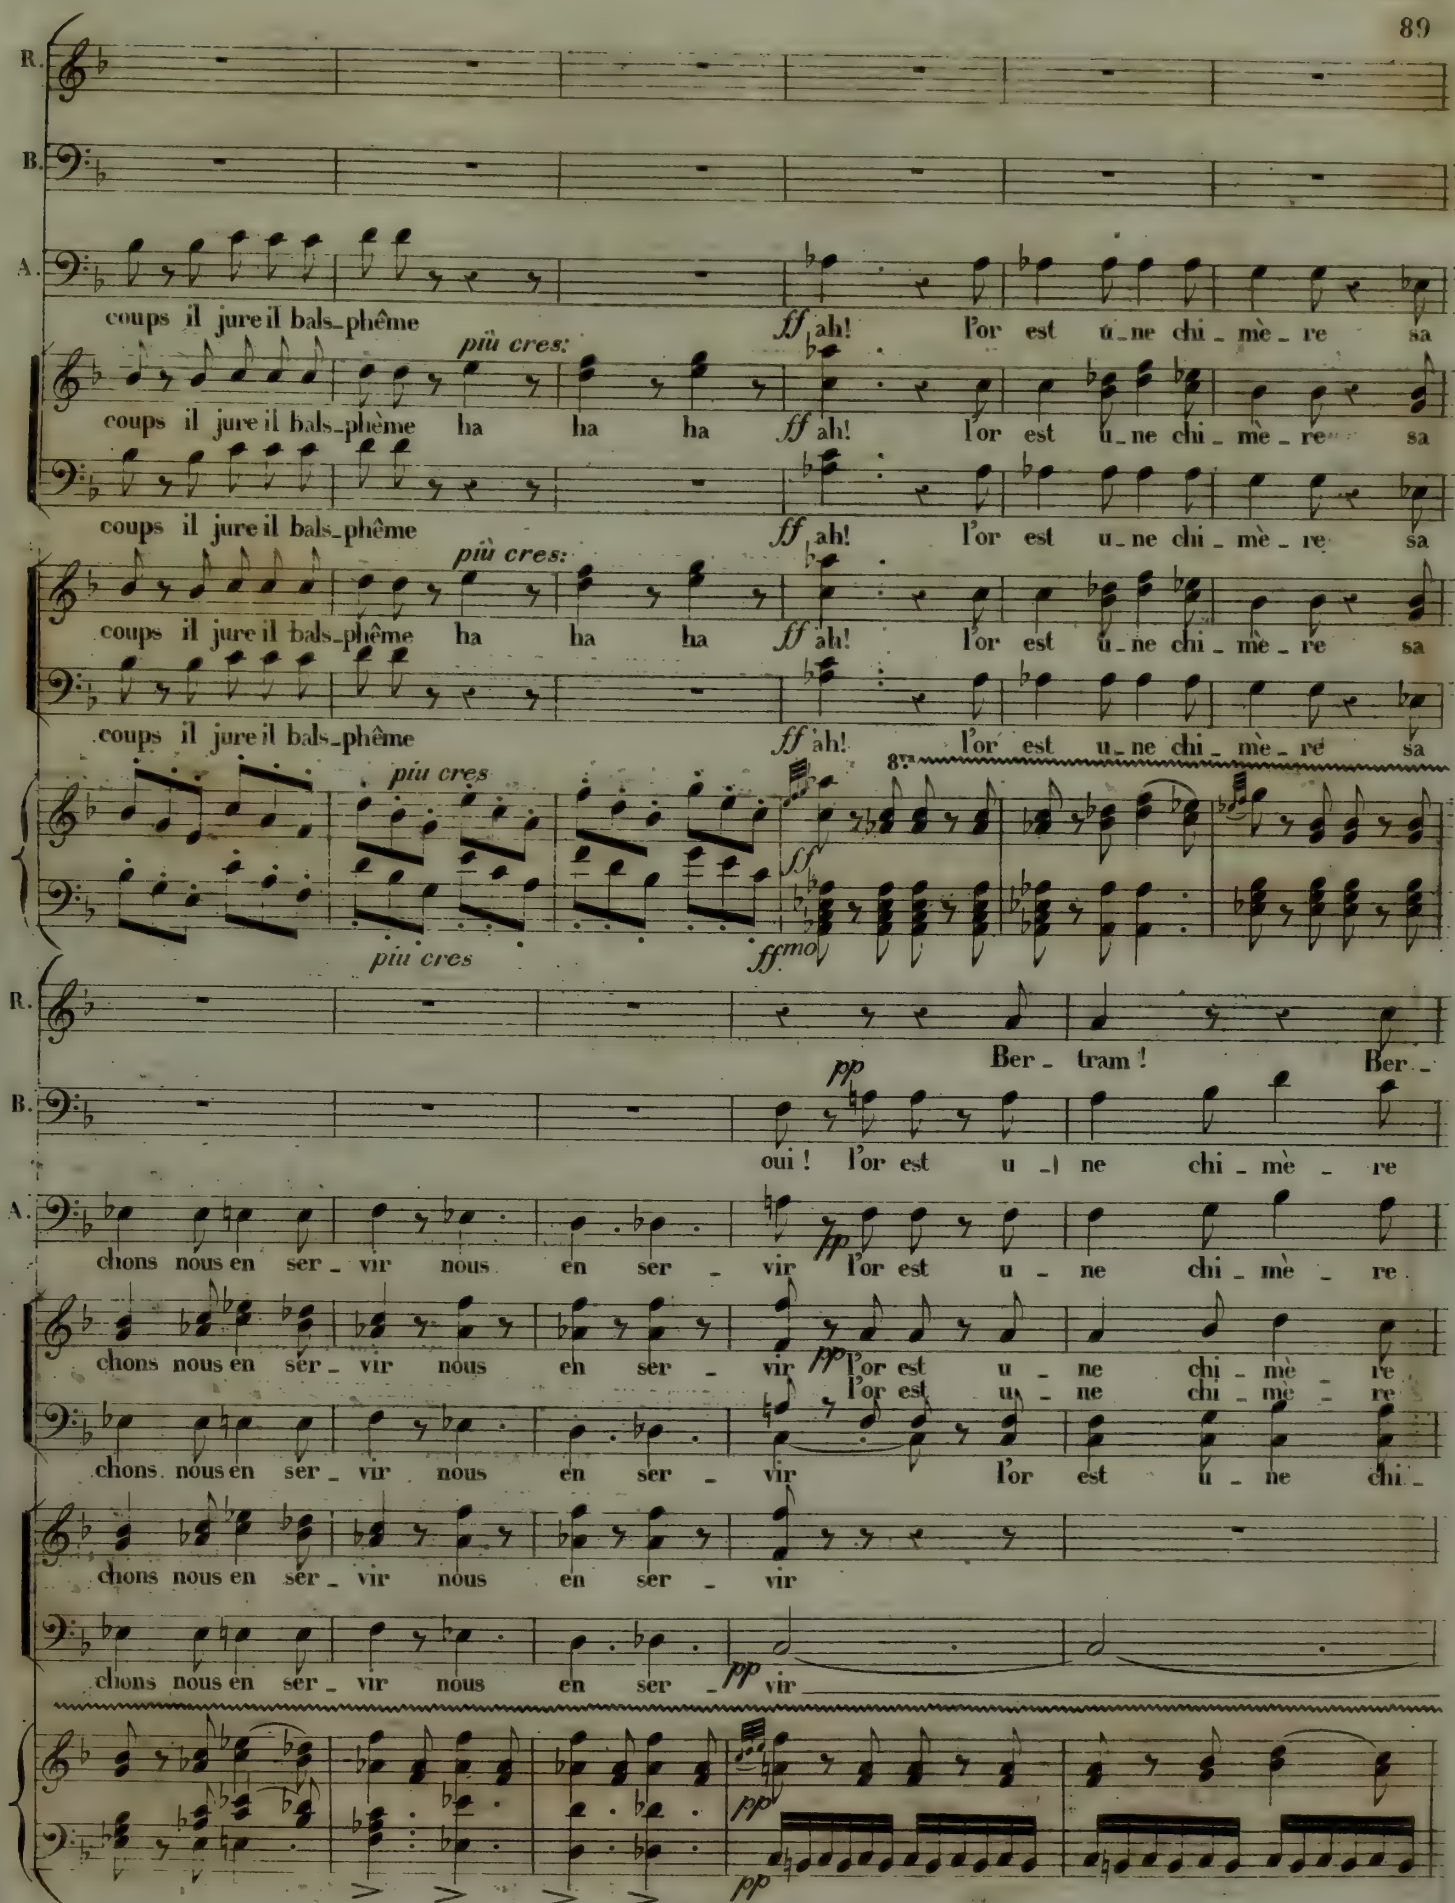 89
R.
B.
A.
coups il jure il bals_phême ff ah! l'or est u_ne chi_mè_re sa
più cres:
coups il jure il bals_phème ha ha ha ff ah! l'or est u_ne chi_mè_re sa
coups il jure il bals_phême ff ah! l'or est u_ne chi_mè_re sa
più cres:
coups il jure il bals_phême ha ha ha ff ah! l'or est u_ne chi_mè_re sa
coups il jure il bals_phême ff ah! l'or est u_ne chi_mè_re sa
piu cres 8va
ff
piu cres ffmo
R.
Ber_ tram! Ber_
pp
B.
oui! l'or est u_ ne chi_mè_re
A.
pp
chons nous en ser_vir nous en ser_vir l'or est u_ne chi_mè_re
pp
chons nous en ser_vir nous en ser_vir l'or est u_ne chi_mè_re
l'or est u_ne chi_mè_re
chons nous en ser_vir nous en ser_vir l'or est u_ne chi_
chons nous en ser_vir nous en ser_vir
chons nous en ser_vir nous en ser_ pp vir
pp
pp